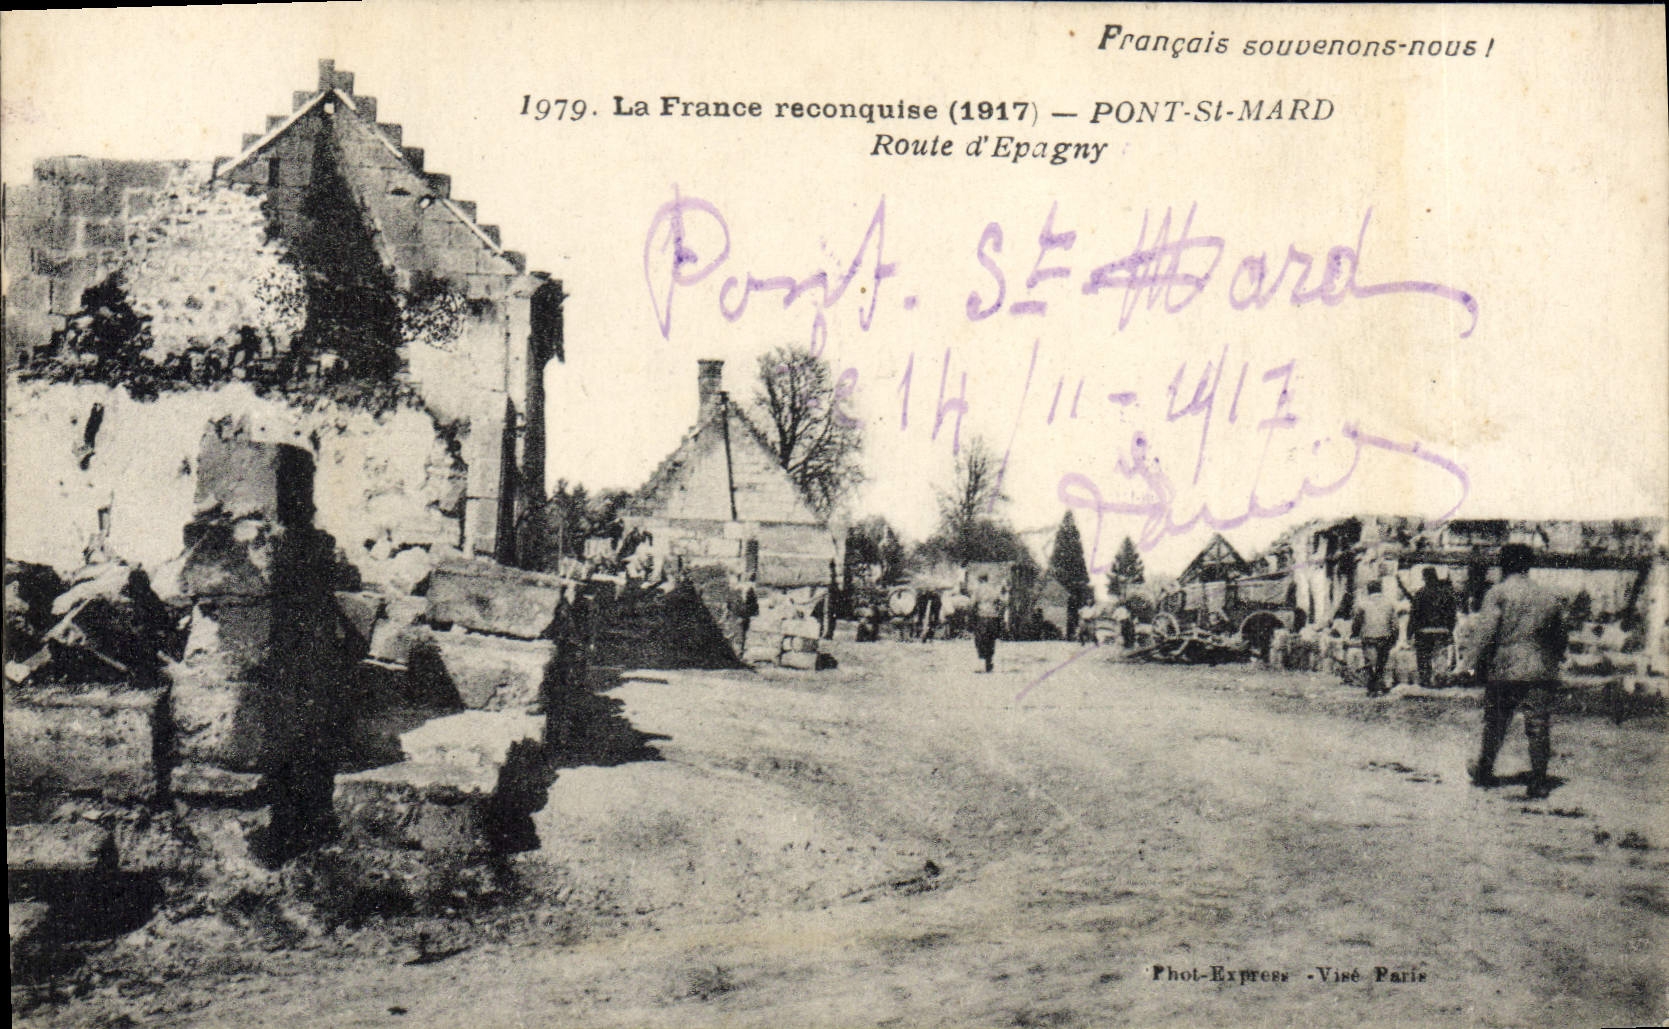 Français souvenons-nous !
1979. La France reconquise (1917) — PONT-St-MARD
Route d'Epagny
Pont. St Mard
le 14/11-1917
Phot-Express - Visé Paris